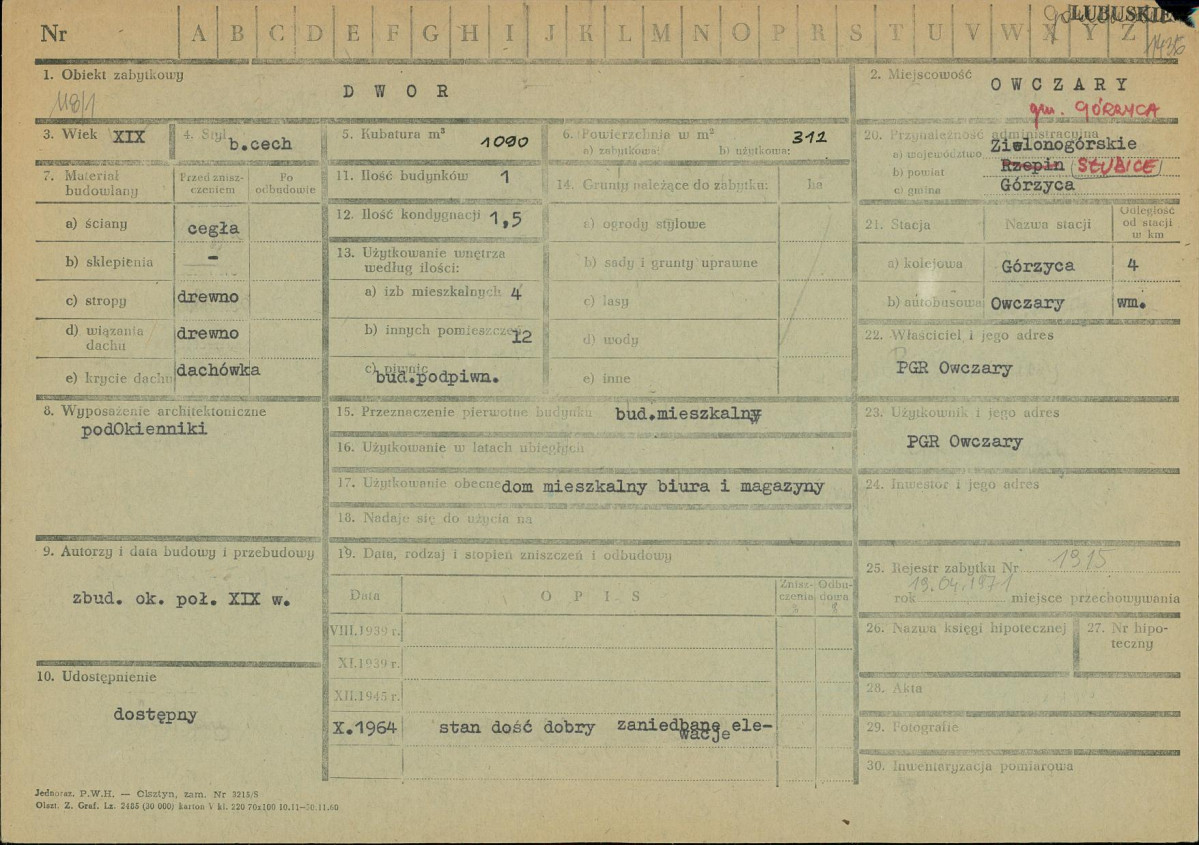 Nr A B C D E F G H I J K L M N O P R S T U V W X Y Z
LUBUSKIE
1. Obiekt zabytkowy
118/1
D W O R
2. Miejscowość
O W C Z A R Y
gm. GÓRZYCA
3. Wiek XIX
4. Styl b.cech
5. Kubatura m³ 1090
6. Powierzchnia w m² 312
a) zabytkowa: b) użytkowa:
20. Przynależność administracyjna
a) województwo Zielonogórskie
b) powiat Rzepin SŁUBICE
c) gmina Górzyca
7. Materiał budowlany
Przed znisz-
czeniem
Po
odbudowie
a) ściany cegła
b) sklepienia -
c) stropy drewno
d) wiązania dachu drewno
e) krycie dachu dachówka
11. Ilość budynków 1
12. Ilość kondygnacji 1,5
13. Użytkowanie wnętrza
według ilości:
a) izb mieszkalnych 4
b) innych pomieszczeń 12
c) piwnic
bud.podpiwn.
14. Grunty należące do zabytku: ha
a) ogrody stylowe
b) sady i grunty uprawne
c) lasy
d) wody
e) inne
21. Stacja
Nazwa stacji
Odległość
od stacji
w km
a) kolejowa Górzyca 4
b) autobusowa Owczary wm.
22. Właściciel i jego adres
PGR Owczary
8. Wyposażenie architektoniczne
podOkienniki
15. Przeznaczenie pierwotne budynku bud.mieszkalny
16. Użytkowanie w latach ubiegłych
17. Użytkowanie obecne dom mieszkalny biura i magazyny
18. Nadaje się do użycia na
23. Użytkownik i jego adres
PGR Owczary
24. Inwestor i jego adres
9. Autorzy i data budowy i przebudowy
zbud. ok. poł. XIX w.
19. Data, rodzaj i stopień zniszczeń i odbudowy
Data
O P I S
Znisz-
czenia
%
Odbu-
dowa
%
VIII.1939 r.
XI.1939 r.
XII.1945 r.
X.1964 stan dość dobry zaniedbane ele-
wacje
25. Rejestr zabytku Nr 1915
19.04.1971
rok miejsce przechowywania
26. Nazwa księgi hipotecznej
27. Nr hipo-
teczny
10. Udostępnienie
dostępny
28. Akta
29. Fotografie
30. Inwentaryzacja pomiarowa
Jednoraz. P.W.H. — Olsztyn, zam. Nr 3215/S
Olszt. Z. Graf. Lz. 2485 (30 000) karton V kl. 220 70x100 10.11—30.11.60